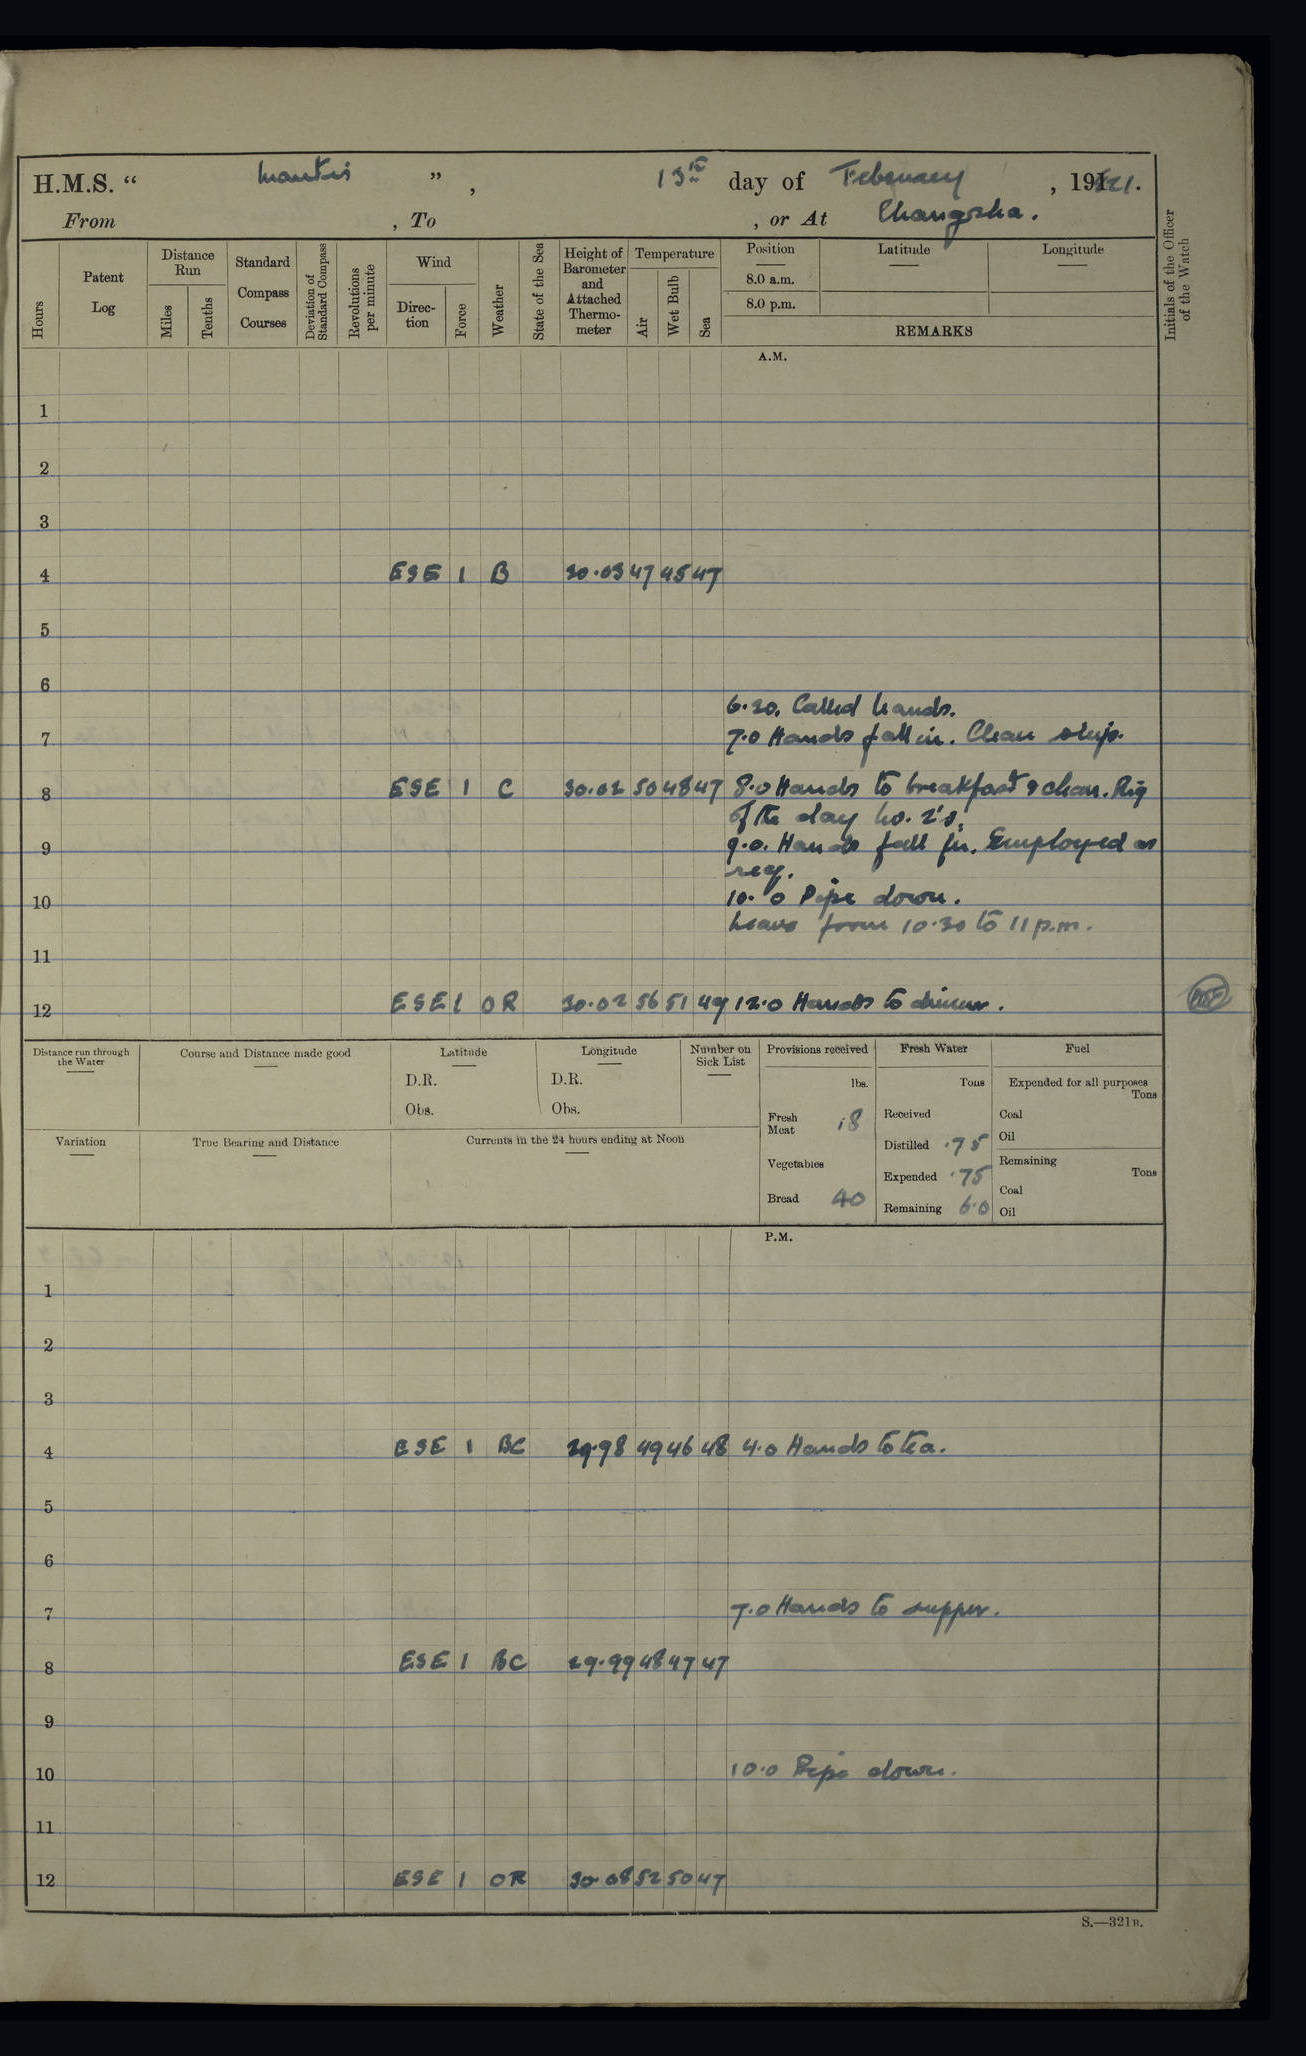 H.M.S. “ Mantis ” , 13th day of February , 1921.
From , To , or At Changsha.
Hours
Patent Log
Distance Run
Miles
Tenths
Standard Compass Courses
Deviation of Standard Compass
Revolutions per minute
Wind
Direc-tion
Force
Weather
State of the Sea
Height of Barometer and Attached Thermo-meter
Temperature
Air
Wet Bulb
Sea
Position
8.0 a.m.
8.0 p.m.
Latitude
Longitude
REMARKS
Initials of the Officer of the Watch
A.M.
1
2
3
4 ESE 1 B 30.03 47 45 47
5
6
6.30. Called hands.
7 7.0 Hands fall in. Clean ship.
8 ESE 1 C 30.02 50 48 47 8.0 Hands to breakfast & clean. Rig
of the day No. 2's.
9 9.0. Hands fall in. Employed as
req.
10 10.0 Pipe down.
Leave from 10.30 to 11 p.m.
11
12 ESE 1 OR 30.02 56 51 49 12.0 Hands to dinner.
Distance run through the Water
Course and Distance made good
Latitude
D.R.
Obs.
Longitude
D.R.
Obs.
Number on Sick List
Provisions received
lbs.
Fresh Meat 18
Vegetables
Bread 40
Fresh Water
Tons
Received
Distilled .75
Expended .75
Remaining 6.0
Fuel
Expended for all purposes
Tons
Coal
Oil
Remaining
Tons
Coal
Oil
Variation
True Bearing and Distance
Currents in the 24 hours ending at Noon
P.M.
1
2
3
4 ESE 1 BC 29.98 49 46 48 4.0 Hands to tea.
5
6
7 7.0 Hands to supper.
8 ESE 1 BC 29.99 48 47 47
9
10 10.0 Pipe down.
11
12 ESE 1 OR 30.08 52 50 47
S.—321B.